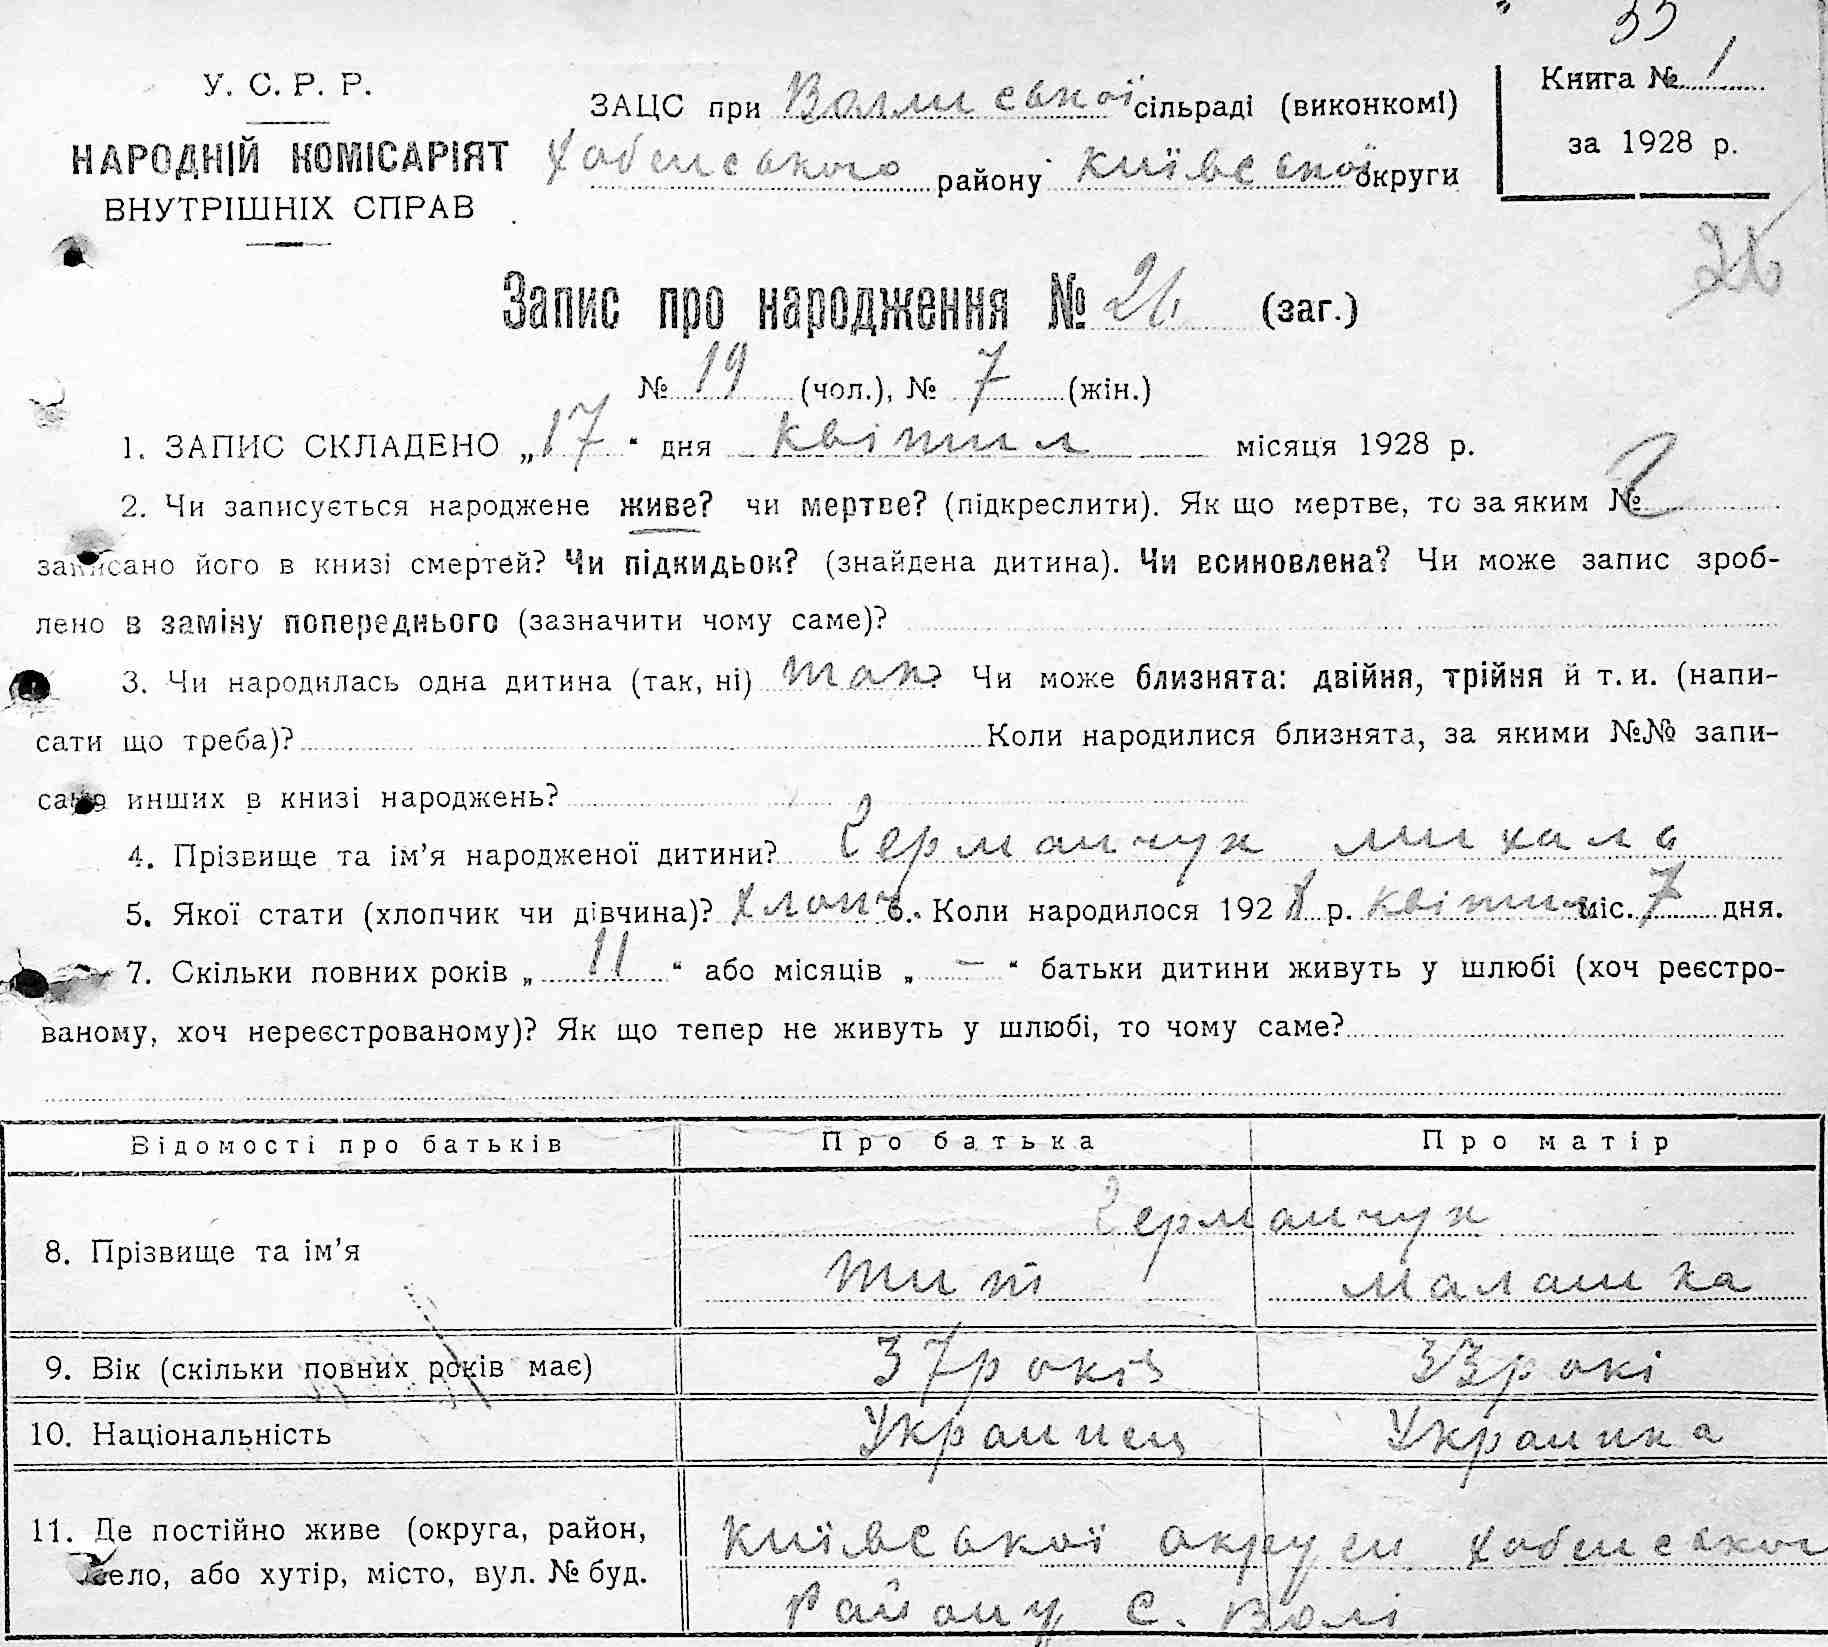 33
У. С. Р. Р.
НАРОДНІЙ КОМІСАРІЯТ
ВНУТРІШНІХ СПРАВ
ЗАЦС при сільраді (виконкомі)
Хабенського району Київської округи
Книга № 1
за 1928 р.
26
Запис про народження № 26 (заг.)
№ 19 (чол.), № 7 (жін.)
1. ЗАПИС СКЛАДЕНО „17“ дня квітил місяця 1928 р.
2. Чи записується народжене живе? чи мертве? (підкреслити). Як що мертве, то за яким №
записано його в книзі смертей? Чи підкидьок? (знайдена дитина). Чи всиновлена? Чи може запис зроб-
лено в заміну попереднього (зазначити чому саме)?
3. Чи народилась одна дитина (так, ні) так? Чи може близнята: двійня, трійня й т. и. (напи-
сати що треба)? Коли народилися близнята, за якими №№ запи-
сано инших в книзі народжень?
4. Прізвище та ім’я народженої дитини? Германчук Михало
5. Якої стати (хлопчик чи дівчина)? хлопч 6. Коли народилося 1928 р. квітил міс. 7 дня.
7. Скільки повних років „ 11 “ або місяців „ — “ батьки дитини живуть у шлюбі (хоч реєстро-
ваному, хоч нереєстрованому)? Як що тепер не живуть у шлюбі, то чому саме?
Відомості про батьків Про батька Про матір
8. Прізвище та ім’я Германчук
Тит Малашка
9. Вік (скільки повних років має) 37 років 33 рокі
10. Національність Украинец Украинка
11. Де постійно живе (округа, район, Київської округи Хабенського
село, або хутір, місто, вул. № буд. Району с. Волі